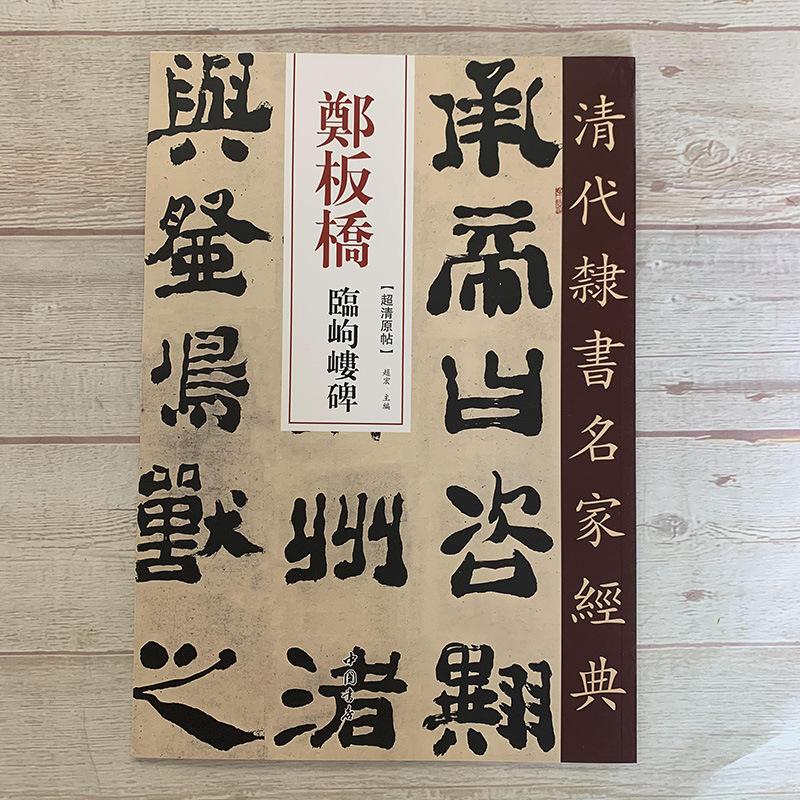 清代隸書名家經典
鄭板橋
臨岣嶁碑
【超清原帖】
趙宏 主編
承帝曰咨翼
洲渚
與登鳥獸之
中国书店